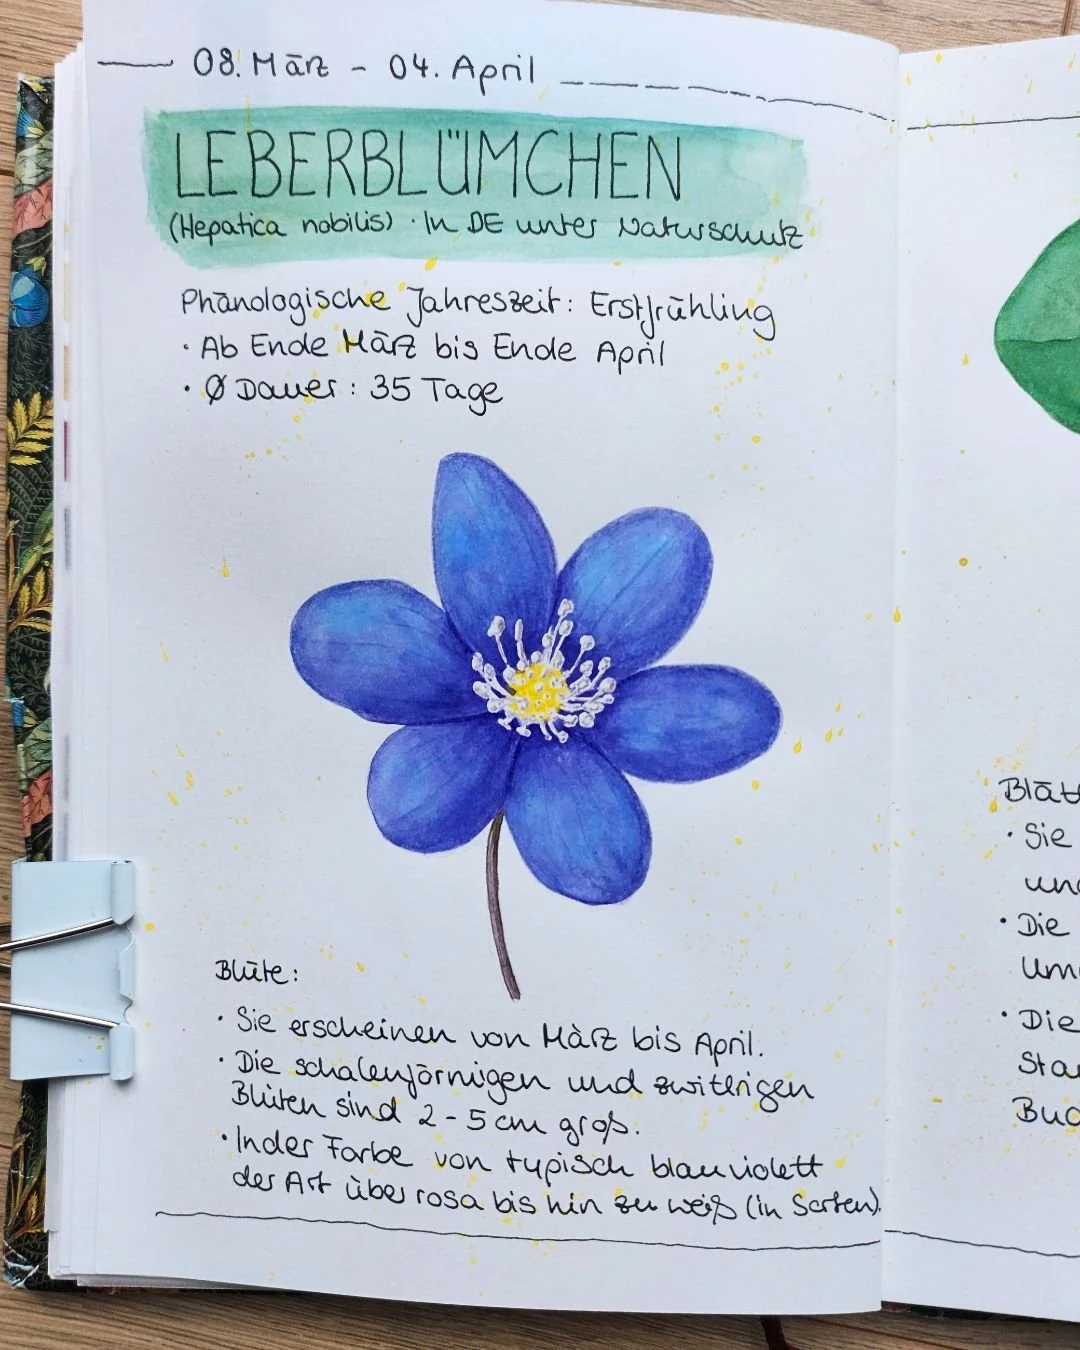 08. März - 04. April
LEBERBLÜMCHEN
(Hepatica nobilis) · In DE unter Naturschutz
Phänologische Jahreszeit: Erstfrühling
· Ab Ende März bis Ende April
· Ø Dauer: 35 Tage
Blüte:
· Sie erscheinen von März bis April.
· Die schalenförmigen und zwittrigen
Blüten sind 2-5 cm groß.
· In der Farbe von typisch blauviolett
der Art über rosa bis hin zu weiß (in Sorten).
Blät
· Sie
und
· Die
Um
· Die
Sta
Buc